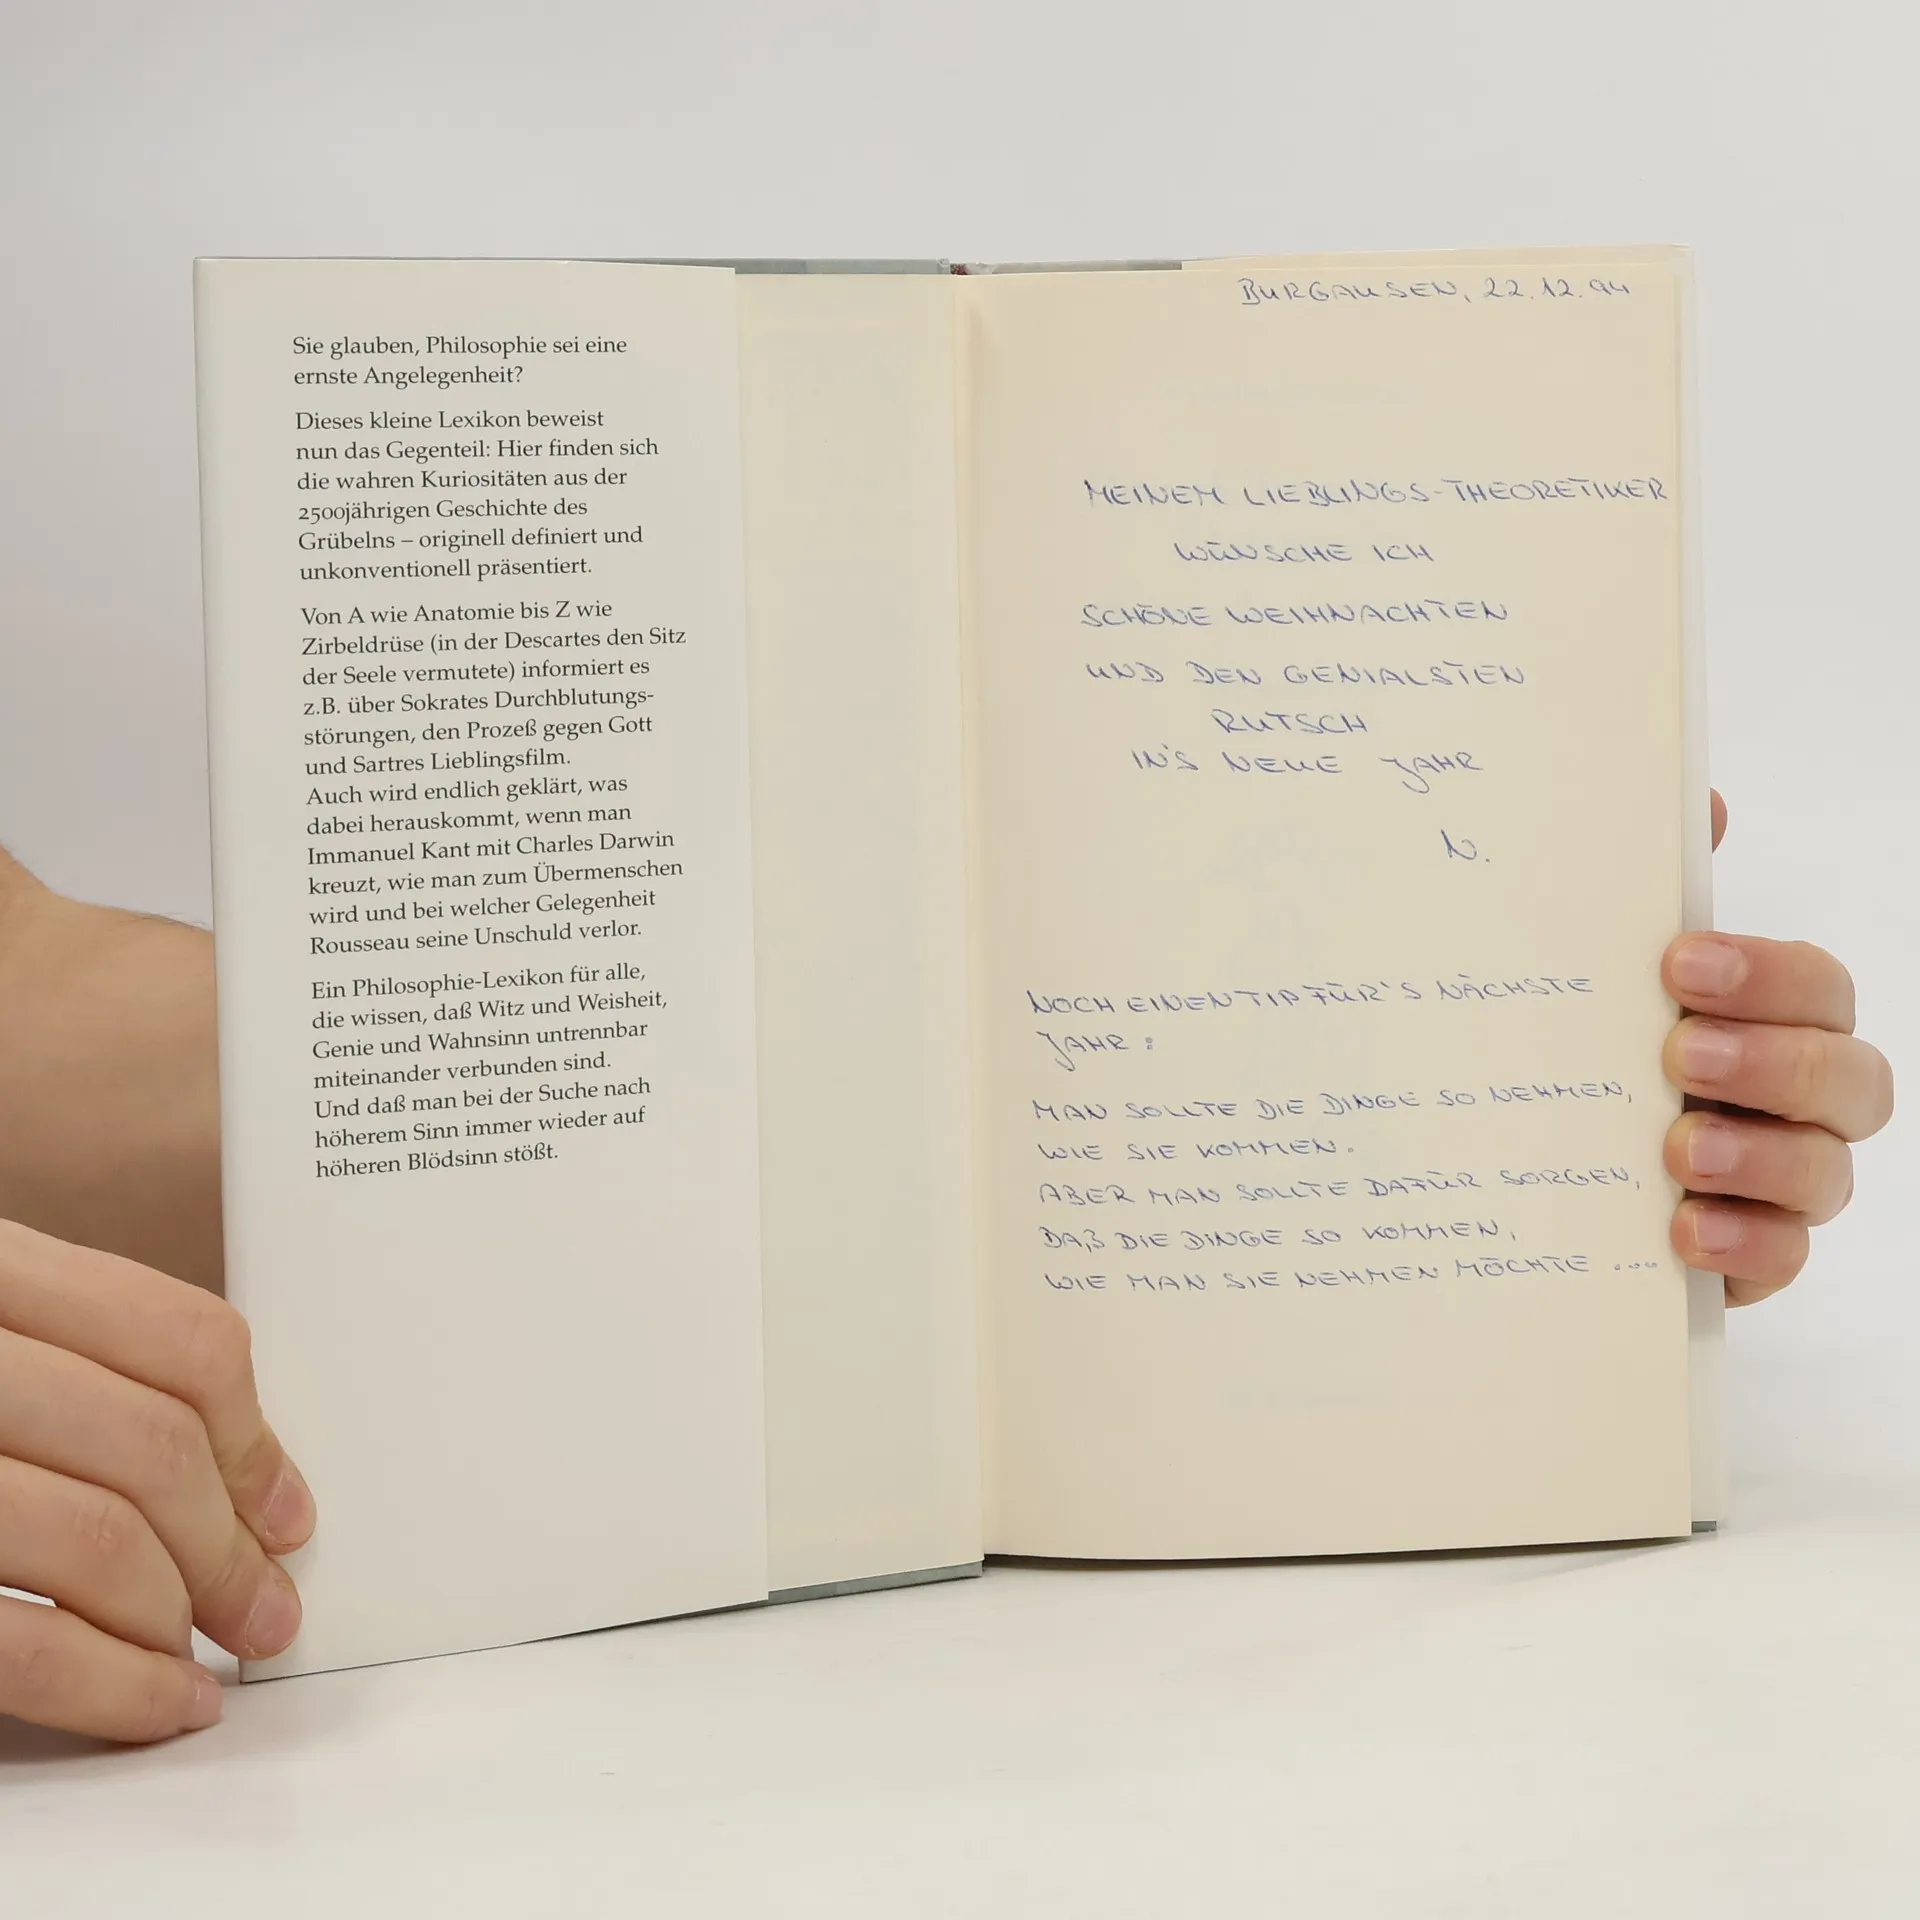 Sie glauben, Philosophie sei eine
ernste Angelegenheit?
Dieses kleine Lexikon beweist
nun das Gegenteil: Hier finden sich
die wahren Kuriositäten aus der
2500jährigen Geschichte des
Grübelns – originell definiert und
unkonventionell präsentiert.
Von A wie Anatomie bis Z wie
Zirbeldrüse (in der Descartes den Sitz
der Seele vermutete) informiert es
z.B. über Sokrates Durchblutungs-
störungen, den Prozeß gegen Gott
und Sartres Lieblingsfilm.
Auch wird endlich geklärt, was
dabei herauskommt, wenn man
Immanuel Kant mit Charles Darwin
kreuzt, wie man zum Übermenschen
wird und bei welcher Gelegenheit
Rousseau seine Unschuld verlor.
Ein Philosophie-Lexikon für alle,
die wissen, daß Witz und Weisheit,
Genie und Wahnsinn untrennbar
miteinander verbunden sind.
Und daß man bei der Suche nach
höherem Sinn immer wieder auf
höheren Blödsinn stößt.
BURGAUSEN, 22.12.94
MEINEM LIEBLINGS-THEORETIKER
WÜNSCHE ICH
SCHÖNE WEIHNACHTEN
UND DEN GENIALSTEN
RUTSCH
IN'S NEUE JAHR
N.
NOCH EINEN TIP FÜR'S NÄCHSTE
JAHR:
MAN SOLLTE DIE DINGE SO NEHMEN,
WIE SIE KOMMEN.
ABER MAN SOLLTE DAFÜR SORGEN,
DAß DIE DINGE SO KOMMEN,
WIE MAN SIE NEHMEN MÖCHTE ...